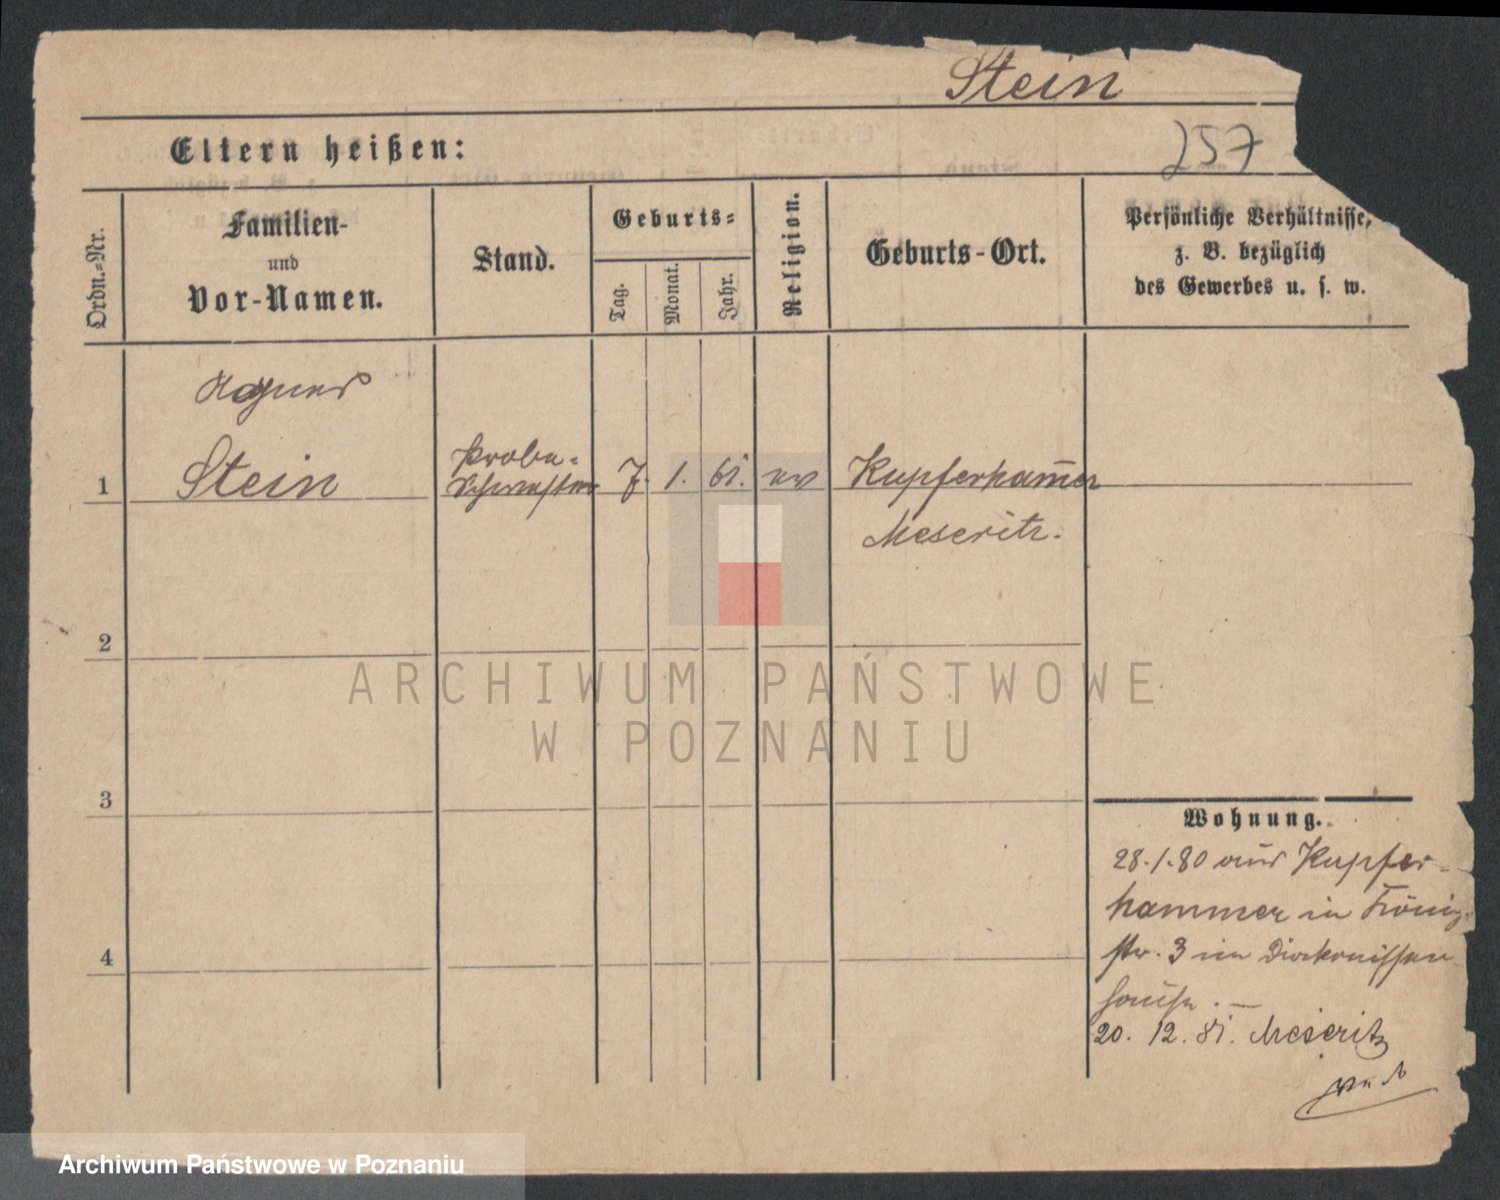 Stein
257
Eltern heißen:
Ordn.-Nr.
Familien-
und
Vor-Namen.
Stand.
Geburts-
Tag.
Monat.
Jahr.
Religion.
Geburts-Ort.
Persönliche Verhältnisse,
z. B. bezüglich
des Gewerbes u. s. w.
Agnes
1 Stein Probe- 7. 1. 61. ev Kupferham̅er
Schwester Meseritz.
2
3
4
Wohnung.
28.1.80 aus Kupfer-
hammer in König-
str. 3 im Diakonissen
hause. —
20. 12. 81. Meseritz
ARCHIWUM PAŃSTWOWE
W POZNANIU
Archiwum Państwowe w Poznaniu